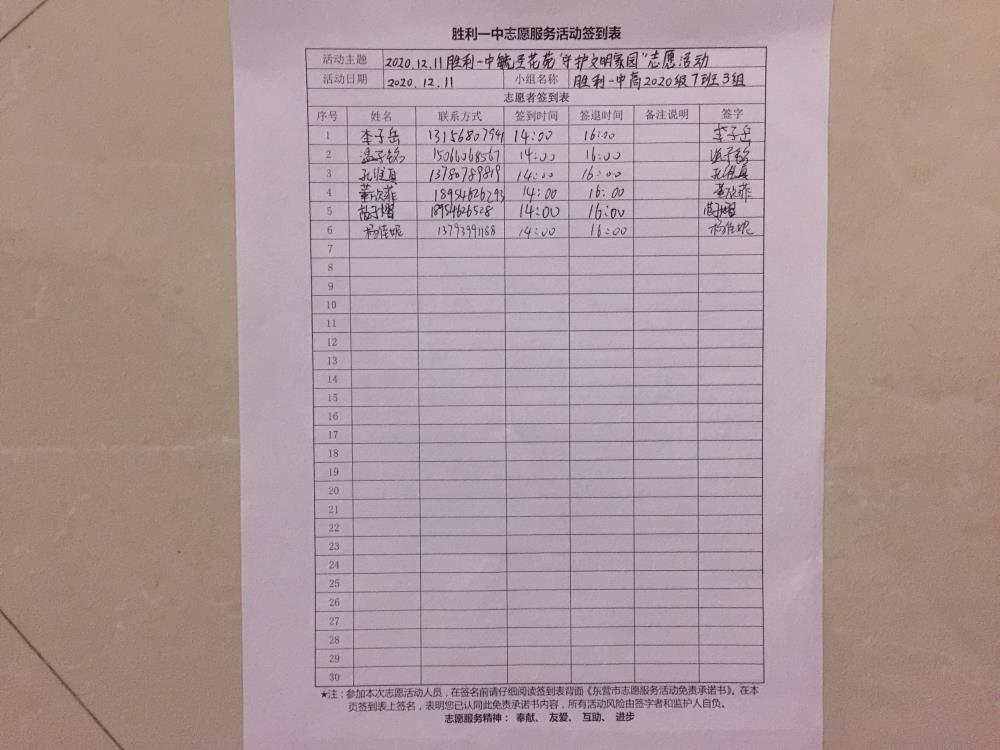 胜利一中志愿服务活动签到表
活动主题 2020.12.11胜利一中毓呈花苑"守护文明家园"志愿活动
活动日期 2020.12.11 小组名称 胜利一中高2020级7班3组
志愿者签到表
序号 姓名 联系方式 签到时间 签退时间 备注说明 签字
1 李子岳 13156807941 14:00 16:00 李子岳
2 温子铭 15066068567 14:00 16:00 温子铭
3 13780789819 14:00 16:00
4 董欣菲 18954626293 14:00 16:00 董欣菲
5 18954626528 14:00 16:00
6 杨佳妮 13793991168 14:00 16:00 杨佳妮
7
8
9
10
11
12
13
14
15
16
17
18
19
20
21
22
23
24
25
26
27
28
29
30
★注:参加本次志愿活动人员,在签名前请仔细阅读签到表背面《东营市志愿服务活动免责承诺书》。在本
页签到表上签名,表明您已认同此免责承诺书内容,所有活动风险由签字者和监护人自负。
志愿服务精神: 奉献、 友爱、 互助、 进步